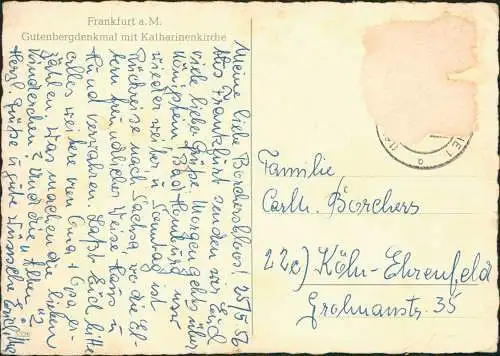 Frankfurt a. M.
Gutenbergdenkmal mit Katharinenkirche
Meine liebe Borchersbloos! 25/5.56
Aus Frankfurt senden wir Euch
viele liebe Grüße. Morgen geht's über
Königstein, Bad Homburg nun
wieder weiter u. Sonntag ist
Rückreise nach Sachsa, wo die El-
tern freundlicher Weise Haus u.
Hund verwahren. Laßt Euch bitte
alles weitere von Oma + Opa er-
zählen. Was machen die lieben
Kinderchen? Und die
Herzl. Grüße u. gute
Familie
Carlh. Borchers
22c) Köln-Ehrenfeld
Grolmanstr. 35